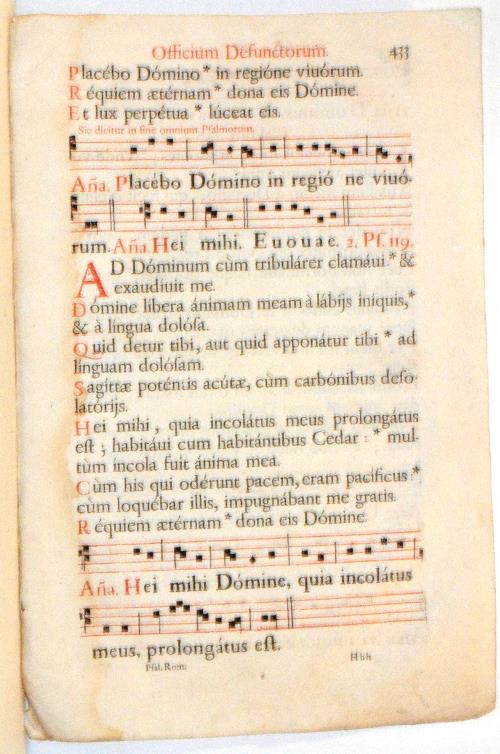 Officium Defunctorum. 433
Placébo Dómino * in regióne viuórum.
Réquiem ætérnam * dona eis Dómine.
Et lux perpétua * lúceat eis.
Sic dicitur in fine omnium Psalmorum.
Aña. Placébo Dómino in regió ne viuó-
rum. Aña. Hei mihi. E u o u a e. 2. Ps. 119.
AD Dóminum cùm tribulárer clamáui: * &
exaudiuit me.
Dómine libera ánimam meam à lábijs iníquis, *
& à lingua dolósa.
Quid detur tibi, aut quid apponátur tibi * ad
línguam dolósam.
Sagíttæ poténtis acútæ, cùm carbónibus deso-
latórijs.
Hei mihi, quia incolátus meus prolongátus
est; habitáui cum habitántibus Cedar: * mul-
tùm íncola fuit ánima mea.
Cùm his qui odérunt pacem, eram pacíficus: *
cùm loquébar illis, impugnábant me gratis.
Réquiem ætérnam * dona eis Dómine.
Aña. Hei mihi Dómine, quia incolátus
meus, prolongátus est.
Psal. Rom. Hhh